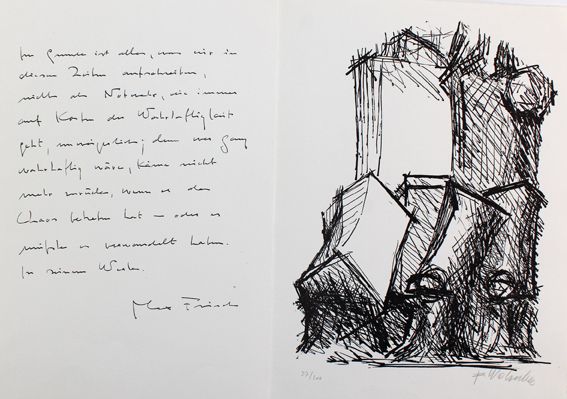 Im Grunde ist alles, was wir in
diesen Zeiten aufschreiben,
nichts als Notwehr, die immer
auf Kosten der Wahrhaftigkeit
geht, unvermeidlich; denn wer ganz
wahrhaftig wäre, käme nicht
mehr zurück, wenn er das
Chaos betreten hat – oder er
müsste es verwandelt haben.
In seinem
Max Frisch